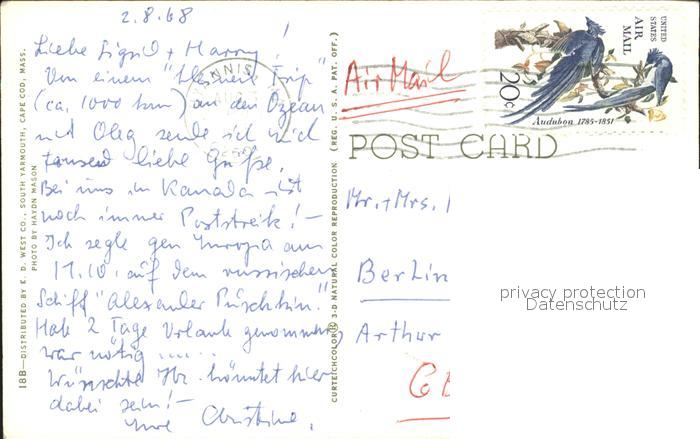 2.8.68
Liebe Sigrid + Harry!
Von einem "kleinen Trip"
(ca. 1000 km) an den Ozean
und Oleg sende ich euch
tausend liebe Grüße.
Bei uns in Kanada ist
noch immer Poststreik! -
Ich segle gen Europa am
17.10. auf dem russischen
Schiff "Alexander Puschkin".
Hab 2 Tage Urlaub genommen,
war nötig .....
Wünschte Ihr könntet hier
dabei sein! -
Eure Christine.
18B—DISTRIBUTED BY E. D. WEST CO., SOUTH YARMOUTH, CAPE COD, MASS.
PHOTO BY HAYDN MASON
CURTEICHCOLOR® 3-D NATURAL COLOR REPRODUCTION (REG. U. S. A. PAT. OFF.)
NNIS
Air Mail
UNITED STATES
AIR MAIL
20c
Audubon 1785-1851
POST CARD
Mr. + Mrs.
Berlin
Arthur
privacy protection
Datenschutz